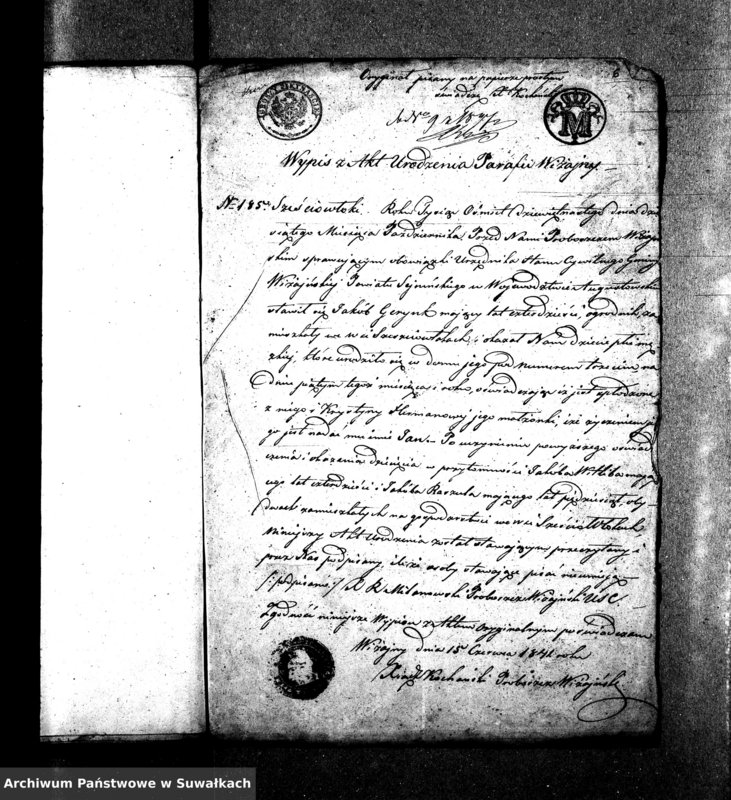 Oryginał pisany na papierze prostym
świadczę X. Kochański
do Nr 9
Wypis z Akt Urodzenia Parafii Wiżajny
N. 185. Sześciowłoki. Roku Tysiąc Ośmset Dziewiętnastego dnia dzie
siątego Miesiąca Października, Przed Nami Proboszczem Wiżay
skim sprawującym obowiązki Urzędnika Stanu Cywilnego Gminy
Wiżajńskiej Powiatu Sejneńskiego w Województwie Augustowskim
stawił się Jakób Gerynk mający lat czterdzieści, ogrodnik, za
mieszkały we wsi Szesciowłokach, i okazał Nam dziecie płci męz
kiej, które urodziło się w domu jego pod numerem trzecim, na
dniu piątym tegoż miesiąca i roku, oświadczając iż jest spłodzone
z niego i Krystyny Hermanowej jego małżonki, i że życzeniem je
go jest nadać mu imie Jan. Po uczynieniu powyższego oświad
czenia i okazaniu dziecięcia w przytomności Jakóba mają
cego lat czterdzieści i Jakóba Karzula mającego lat pięćdziesiąt, oby
dwóch zamieszkałych na gospodarstwie we wsi Sześciuwłokach
niniejszy Akt Urodzenia został stawającym przeczytany i
przez Nas podpisany, ile że osoby stawające pisać nieumieją
/:podpisano:/ X. R. Milanowski Proboszcz Wiżajński USC.
Zgodność niniejszego Wypisu z Aktem Oryginalnym poświadczam
Wiżajny dnia 15 Czerwca 1841 roku
Xiądz Kochański Proboszcz Wiżajński
Archiwum Państwowe w Suwałkach